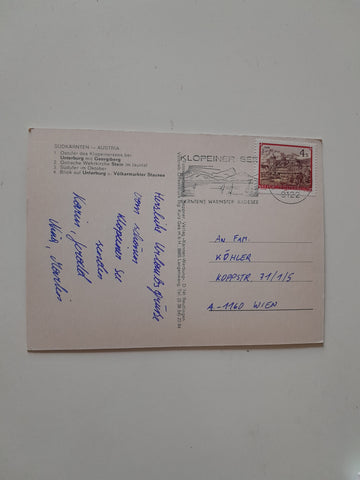 SÜDKÄRNTEN — AUSTRIA
1. Ostufer des Klopeinersees bei
Unterburg mit Georgiberg
2. Gotische Wehrkirche Stein im Jauntal
3. Südufer im Oktober
4. Blick auf Unterburg u. Völkermarkter Stausee
Herzliche Urlaubsgrüße
vom schönen
Klopeiner See
senden
Karin, Gerald
Nina, Martin
KLOPEINER SEE
KÄRNTENS WÄRMSTER BADESEE
9122
4 S
AN FAM.
KÖHLER
KOPPSTR. 71/1/5
A-1160 WIEN